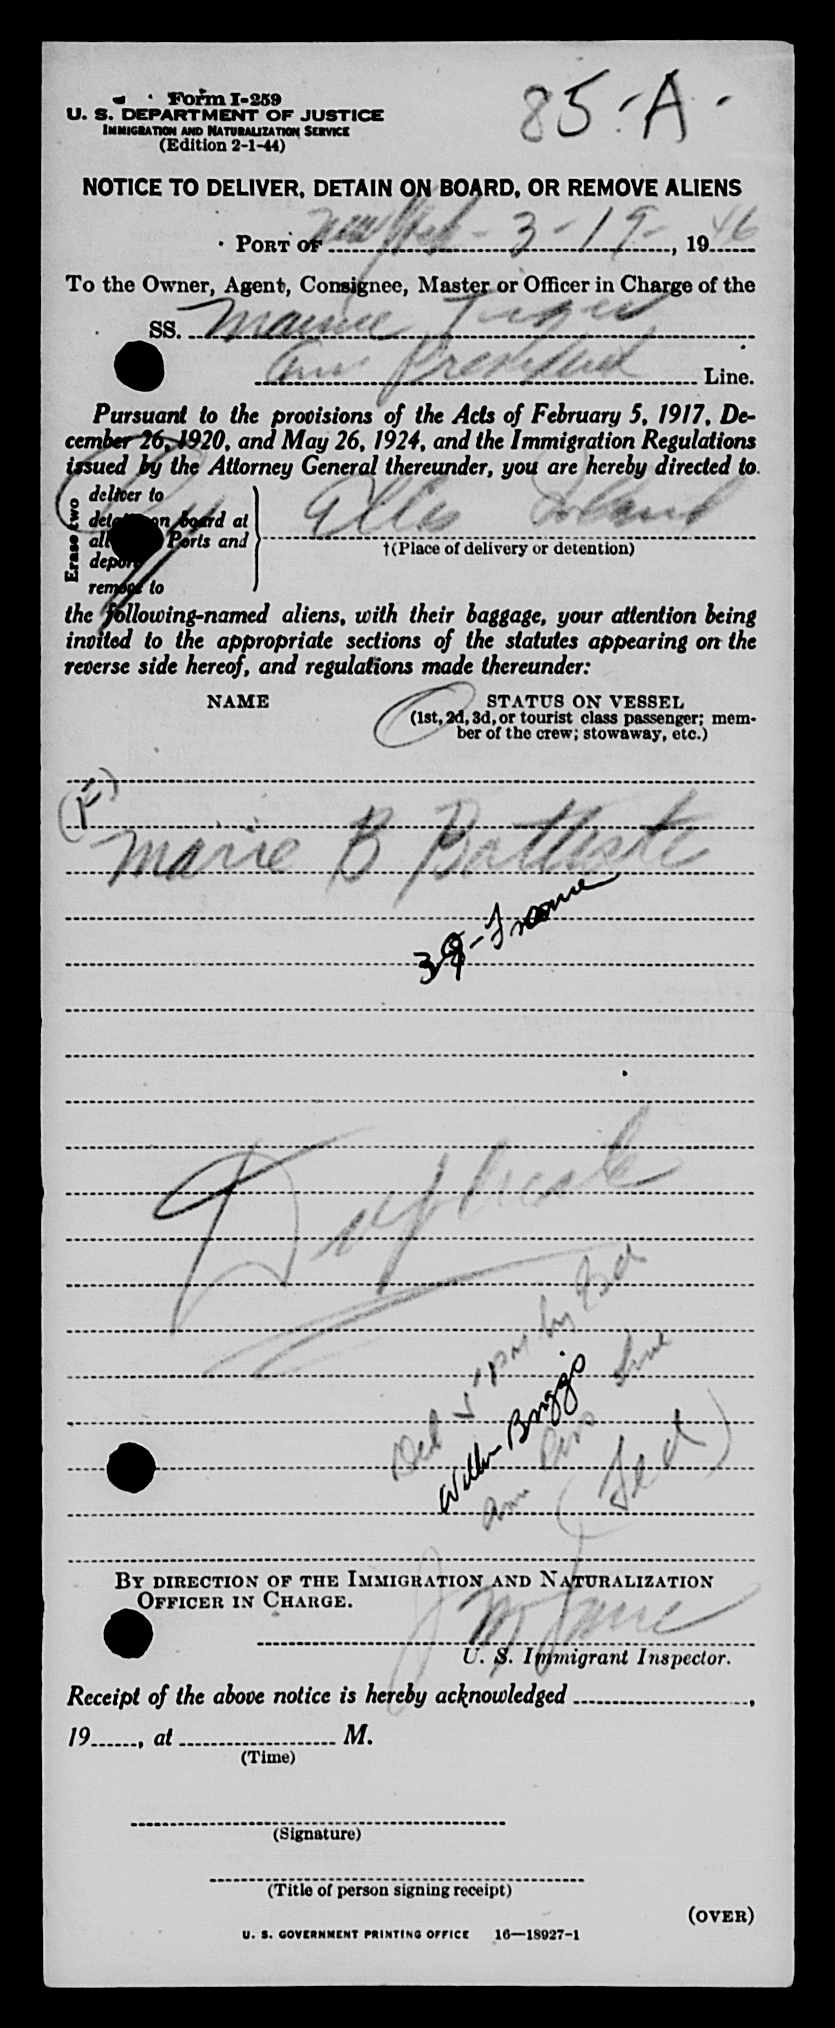 Form I-259
85-A-
U. S. DEPARTMENT OF JUSTICE
IMMIGRATION AND NATURALIZATION SERVICE
(Edition 2-1-44)
NOTICE TO DELIVER, DETAIN ON BOARD, OR REMOVE ALIENS
PORT OF New York - 3-19-, 1946
To the Owner, Agent, Consignee, Master or Officer in Charge of the
SS. Marine Tiger
Am President Line.
Pursuant to the provisions of the Acts of February 5, 1917, De-
cember 26, 1920, and May 26, 1924, and the Immigration Regulations
issued by the Attorney General thereunder, you are hereby directed to
Erase two
deliver to
detain on board at
all Ports and
deport
remove to
Ellis Island
†(Place of delivery or detention)
the following-named aliens, with their baggage, your attention being
invited to the appropriate sections of the statutes appearing on the
reverse side hereof, and regulations made thereunder:
NAME
STATUS ON VESSEL
(1st, 2d, 3d, or tourist class passenger; mem-
ber of the crew; stowaway, etc.)
(F)
Marie B Battiste
39-France
Duplicate
Del 5" PM by
Briggs
Am Pres Line
J M
BY DIRECTION OF THE IMMIGRATION AND NATURALIZATION
OFFICER IN CHARGE.
U. S. Immigrant Inspector.
Receipt of the above notice is hereby acknowledged ,
19 , at M.
(Time)
(Signature)
(Title of person signing receipt)
(OVER)
U. S. GOVERNMENT PRINTING OFFICE 16—18927-1